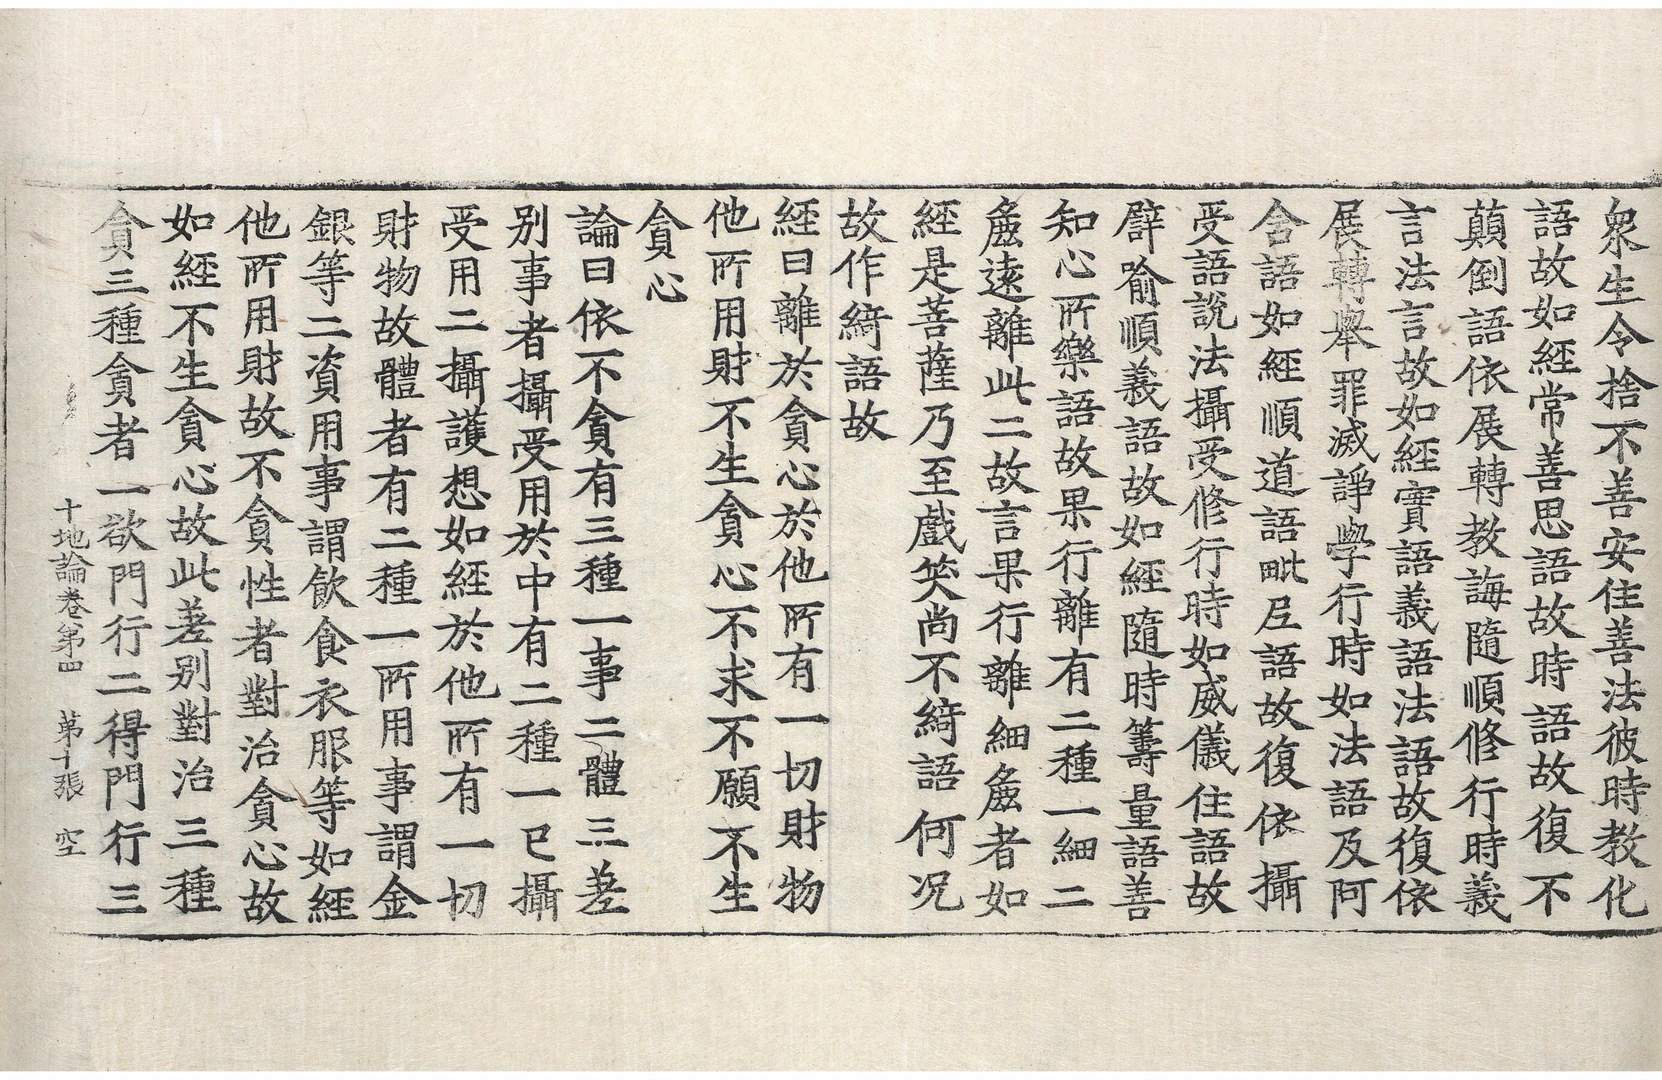 衆生令捨不善安住善法彼時教化
語故如經常善思語故時語故復不
顛倒語依展轉教誨隨順修行時義
言法言故如經實語義語法語故復依
展轉舉罪滅諍學行時如法語及阿
含語如經順道語毗尼語故復依攝
受語說法攝受修行時如威儀住語故
譬喻順義語故如經隨時籌量語善
知心所樂語故果行離有二種一細二
麁遠離此二故言果行離細麁者如
經是菩薩乃至戲笑尚不綺語何况
故作綺語故
經曰離於貪心於他所有一切財物
他所用財不生貪心不求不願不生
貪心
論曰依不貪有三種一事二體三差
别事者攝受用於中有二種一已攝
受用二攝護想如經於他所有一切
財物故體者有二種一所用事謂金
銀等二資用事謂飲食衣服等如經
他所用財故不貪性者對治貪心故
如經不生貪心故此差别對治三種
貪三種貪者一欲門行二得門行三
十地論卷第四 第十張 空